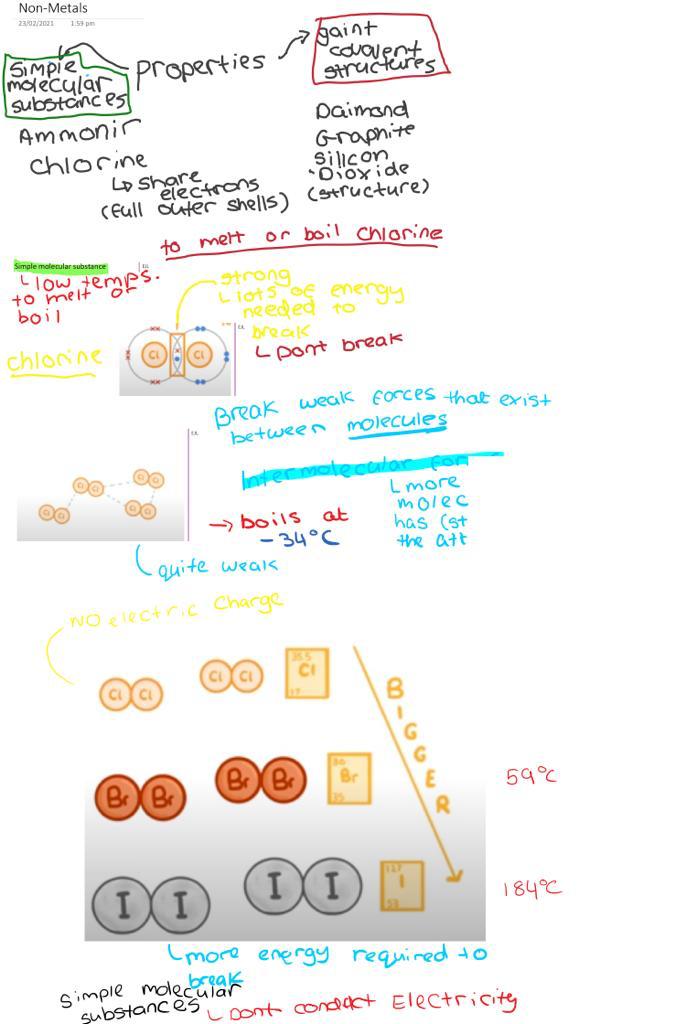 Non-Metals
23/02/2021 1:59 pm
properties
Simple
molecular
substances
gaint
covavent
structures
Ammonir
Chlorine
↳ share
electrons
(full outer shells)
Daimond
Graphite
silicon
Dioxide
(structure)
to melt or boil chlorine
Simple molecular substance
low temps.
to melt or
boil
strong
lots of energy
needed to
break
↳ Dont break
chlorine
Cl Cl
Break weak forces that exist
between molecules
Intermolecular For
more
molec
has (st
the att
Cl Cl Cl Cl
Cl Cl Cl Cl
→ boils at
-34°C
quite weak
NO electric Charge
Cl Cl Cl Cl 35.5 Cl 17
BIGGER
Br Br Br Br 80 Br 35
59°C
I I I I 127 I 53
184°C
more energy required to
break
Simple molecular
substances
Dont conduct Electricity